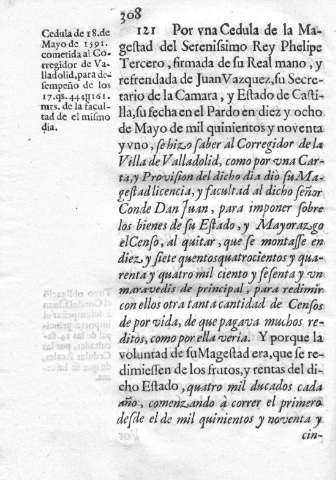 308
Cedula de 18. de
Mayo de 1591.
cometida al Co-
rregidor de Va-
lladolid, para de-
sempeño de los
17.qs.444U161.
mrs. de la facul-
tad de el mismo
dia.
121 Por vna Cedula de la Ma-
gestad del Serenissimo Rey Phelipe
Tercero, firmada de su Real mano, y
refrendada de Juan Vazquez, su Secre-
tario de la Camara, y Estado de Casti-
lla, su fecha en el Pardo en diez y ocho
de Mayo de mil quinientos y noventa
y vno, se hizo saber al Corregidor de la
Villa de Valladolid, como por vna Car-
ta, y Provision del dicho dia diò su Ma-
gestad licencia, y facultad al dicho señor
Conde Dan Juan, para imponer sobre
los bienes de su Estado, y Mayorazgo
el Censo, al quitar, que se montasse en
diez, y siete quentos quatrocientos y qua-
renta y quatro mil ciento y sesenta y vn
maravedis de principal, para redimir
con ellos otra tanta cantidad de Censos
de por vida, de que pagava muchos re-
ditos, como por ella veria. Y porque la
voluntad de su Magestad era, que se re-
dimiessen de los frutos, y rentas del di-
cho Estado, quatro mil ducados cada
año, comenzando à correr el primero
desde el de mil quinientos y noventa y
cin-